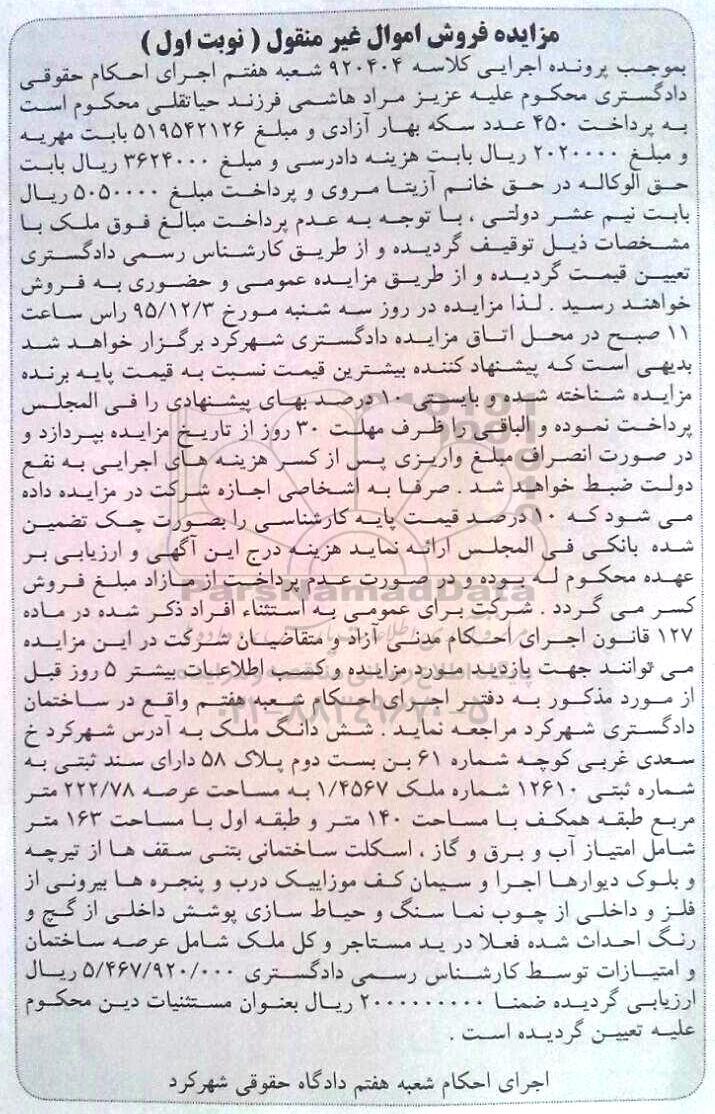 مزایده فروش اموال غیر منقول ( نوبت اول )
بموجب پرونده اجرایی کلاسه ۹۲۰۴۰۴ شعبه هفتم اجرای احکام حقوقی
دادگستری محکوم علیه عزیز مراد هاشمی فرزند حیاتقلی محکوم است
به پرداخت ۴۵۰ عدد سکه بهار آزادی و مبلغ ۵۱۹۵۴۲۱۲۶ بابت مهریه
و مبلغ ۲۰۲۰۰۰۰ ریال بابت هزینه دادرسی و مبلغ ۳۶۲۴۰۰۰ ریال بابت
حق الوکاله در حق خانم آزیتا مروی و پرداخت مبلغ ۵۰۵۰۰۰۰ ریال
بابت نیم عشر دولتی ، با توجه به عدم پرداخت مبالغ فوق ملک با
مشخصات ذیل توقیف گردیده و از طریق کارشناس رسمی دادگستری
تعیین قیمت گردیده و از طریق مزایده عمومی و حضوری به فروش
خواهند رسید . لذا مزایده در روز سه شنبه مورخ ۹۵/۱۲/۳ راس ساعت
۱۱ صبح در محل اتاق مزایده دادگستری شهرکرد برگزار خواهد شد
بدیهی است که پیشنهاد کننده بیشترین قیمت نسبت به قیمت پایه برنده
مزایده شناخته شده و بایستی ۱۰ درصد بهای پیشنهادی را فی المجلس
پرداخت نموده و الباقی را ظرف مهلت ۳۰ روز از تاریخ مزایده بپردازد و
در صورت انصراف مبلغ واریزی پس از کسر هزینه های اجرایی به نفع
دولت ضبط خواهد شد . صرفا به اشخاصی اجازه شرکت در مزایده داده
می شود که ۱۰ درصد قیمت پایه کارشناسی را بصورت چک تضمین
شده بانکی فی المجلس ارائه نماید هزینه درج این آگهی و ارزیابی بر
عهده محکوم له بوده و در صورت عدم پرداخت از مازاد مبلغ فروش
کسر می گردد . شرکت برای عمومی به استثناء افراد ذکر شده در ماده
۱۲۷ قانون اجرای احکام مدنی آزاد و متقاضیان شرکت در این مزایده
می توانند جهت بازدید مورد مزایده و کسب اطلاعات بیشتر ۵ روز قبل
از مورد مذکور به دفتر اجرای احکام شعبه هفتم واقع در ساختمان
دادگستری شهرکرد مراجعه نماید . شش دانگ ملک به آدرس شهرکرد خ
سعدی غربی کوچه شماره ۶۱ بن بست دوم پلاک ۵۸ دارای سند ثبتی به
شماره ثبتی ۱۲۶۱۰ شماره ملک ۱/۴۵۶۷ به مساحت عرصه ۲۲۲/۷۸ متر
مربع طبقه همکف با مساحت ۱۴۰ متر و طبقه اول با مساحت ۱۶۳ متر
شامل امتیاز آب و برق و گاز ، اسکلت ساختمانی بتنی سقف ها از تیرچه
و بلوک دیوارها اجرا و سیمان کف موزاییک درب و پنجره ها بیرونی از
فلز و داخلی از چوب نما سنگ و حیاط سازی پوشش داخلی از گچ و
رنگ احداث شده فعلا در ید مستاجر و کل ملک شامل عرصه ساختمان
و امتیازات توسط کارشناس رسمی دادگستری ۵/۴۶۷/۹۲۰/۰۰۰ ریال
ارزیابی گردیده ضمنا ۲۰۰۰۰۰۰۰۰۰ ریال بعنوان مستثنیات دین محکوم
علیه تعیین گردیده است .
اجرای احکام شعبه هفتم دادگاه حقوقی شهرکرد
ParsNamadData
۰۲۱-۸۸۳۴۹۶۷۰-۵